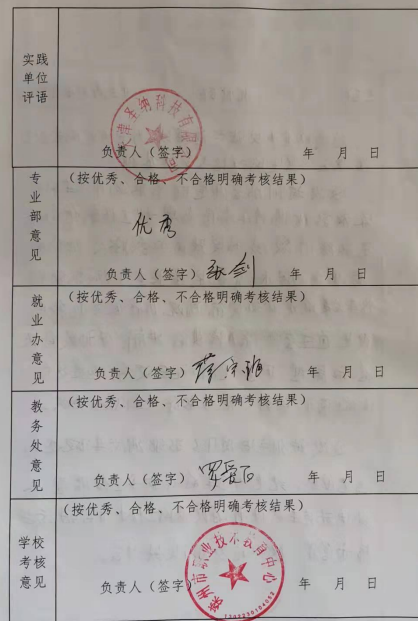 实践
单位
评语
天津圣纳科技有限
负责人（签字） 年 月 日
专业部意见
（按优秀、合格、不合格明确考核结果）
优秀
负责人（签字） 年 月 日
就业办意见
（按优秀、合格、不合格明确考核结果）
负责人（签字） 年 月 日
教务处意见
（按优秀、合格、不合格明确考核结果）
负责人（签字） 年 月 日
学校
考核
意见
（按优秀、合格、不合格明确考核结果）
市职业技术教育中心
负责人（签字） 年 月 日